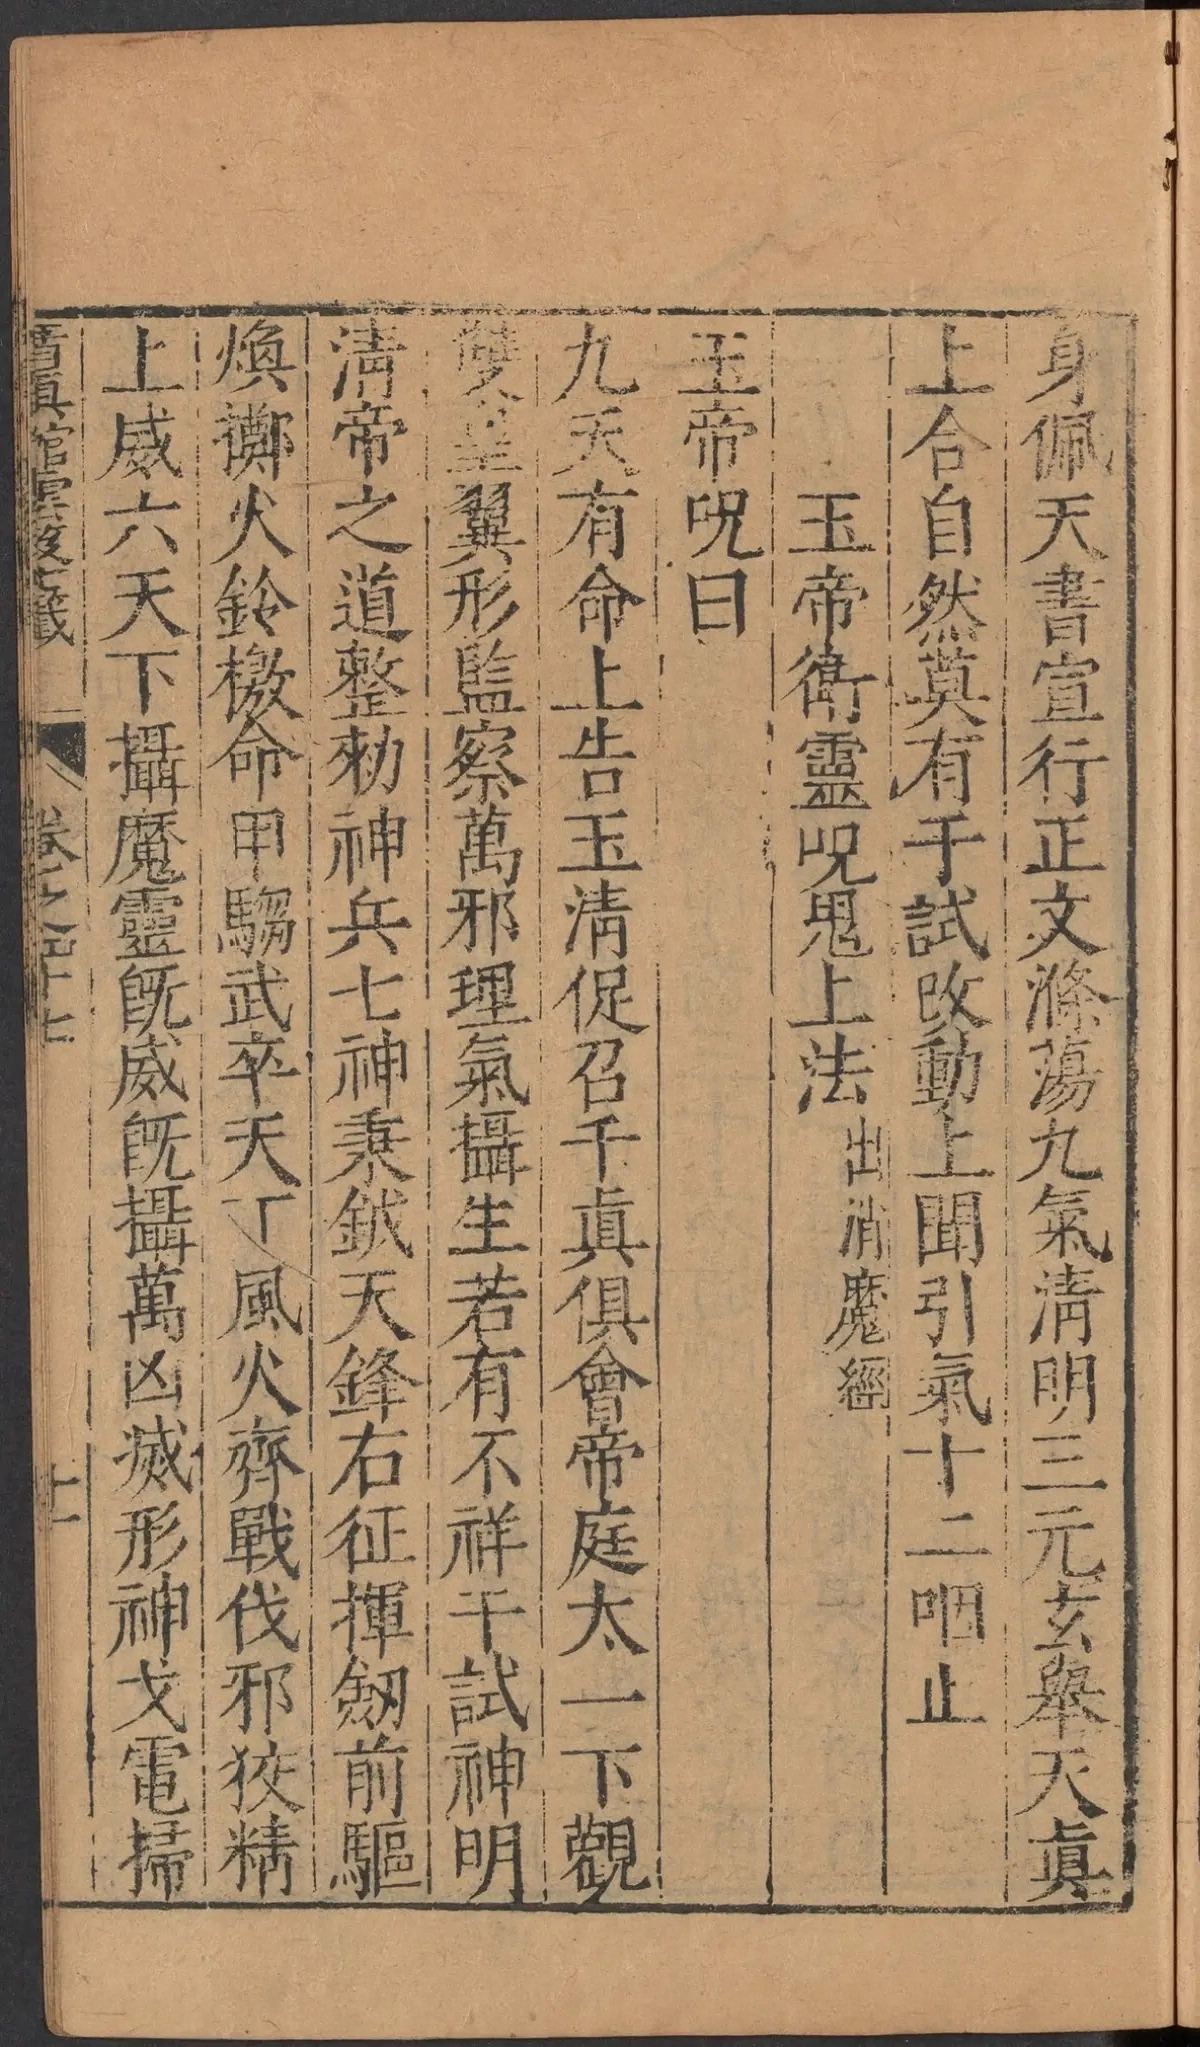 身佩天書宣行正文滌蕩九氣淸明三元玄舉天眞
上合自然莫有干試改動上聞引氣十二咽止
玉帝衛靈呪鬼上法出消魔經
玉帝呪曰
九天有命上告玉淸促召千眞俱會帝庭太一下觀
雙皇翼形監察萬邪理氣攝生若有不祥干試神明
淸帝之道整勑神兵七神秉鉞天鋒右征揮劒前驅
煥擲火鈴檄命甲騶武卒天丁風火齊戰伐邪狡精
上威六天下攝魔靈旣威旣攝萬凶滅形神戈電掃
淸眞館雲笈七籤
卷之四十七
十一